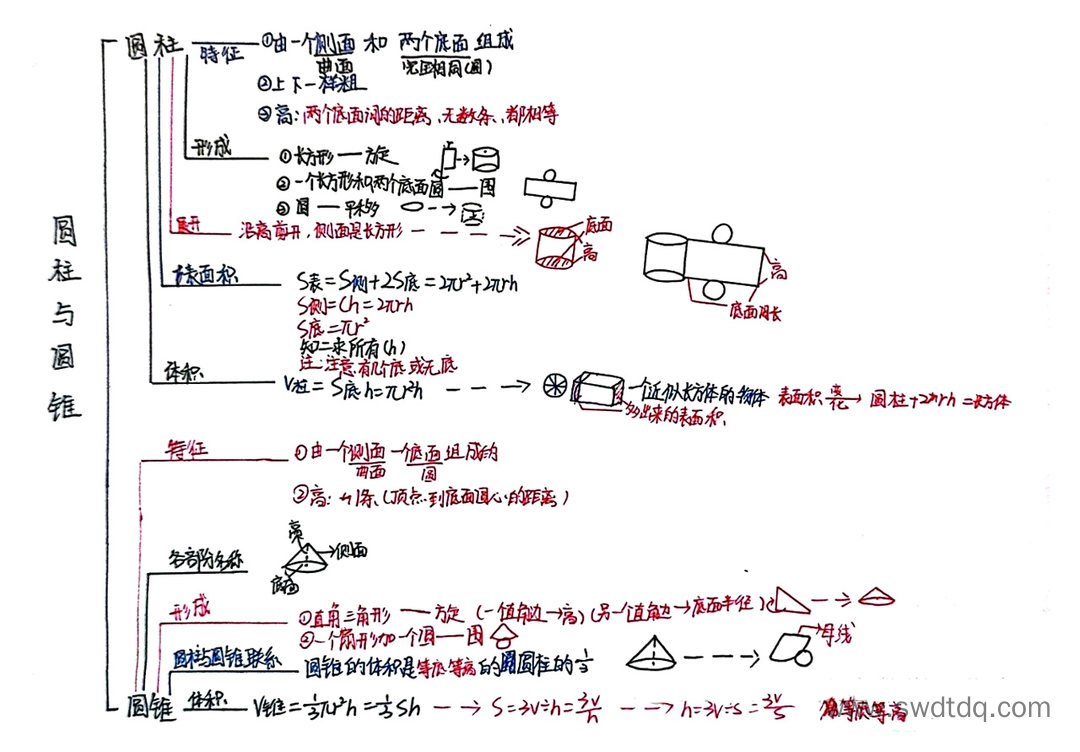 圆柱与圆锥
圆柱
特征
①由一个侧面 和 两个底面 组成
曲面 完全相同(圆)
②上下一样粗
③高：两个底面间的距离、无数条、都相等
形成
①长方形——方旋
②一个长方形和两个底面圆——围
③圆——平移
展开
沿高剪开，侧面是长方形
底面
高
高
底面周长
表面积
S表=S侧+2S底=2πr²+2πrh
S侧=Ch=2πrh
S底=πr²
知二求所有(h)
注：注意有几个底或无底
体积
V柱=S底h=πr²h
一个近似长方体的物体 表面积 圆柱+2rh=长方体
多出来的表面积
特征
①由一个侧面一个底面组成的
曲面 圆
②高：1条(顶点到底面圆心的距离)
各部分名称
高
侧面
底面
形成
①直角三角形——方旋(一直角边→高)(另一个直角边→底面半径)
②一个扇形加一个圆——围
母线
圆柱与圆锥联系
圆锥的体积是等底等高的圆柱的1/3
圆锥
体积
V锥=1/3πr²h=1/3Sh → S=3V÷h=3V/h → h=3V÷S=3V/S 等底等高
www.swdtdq.com